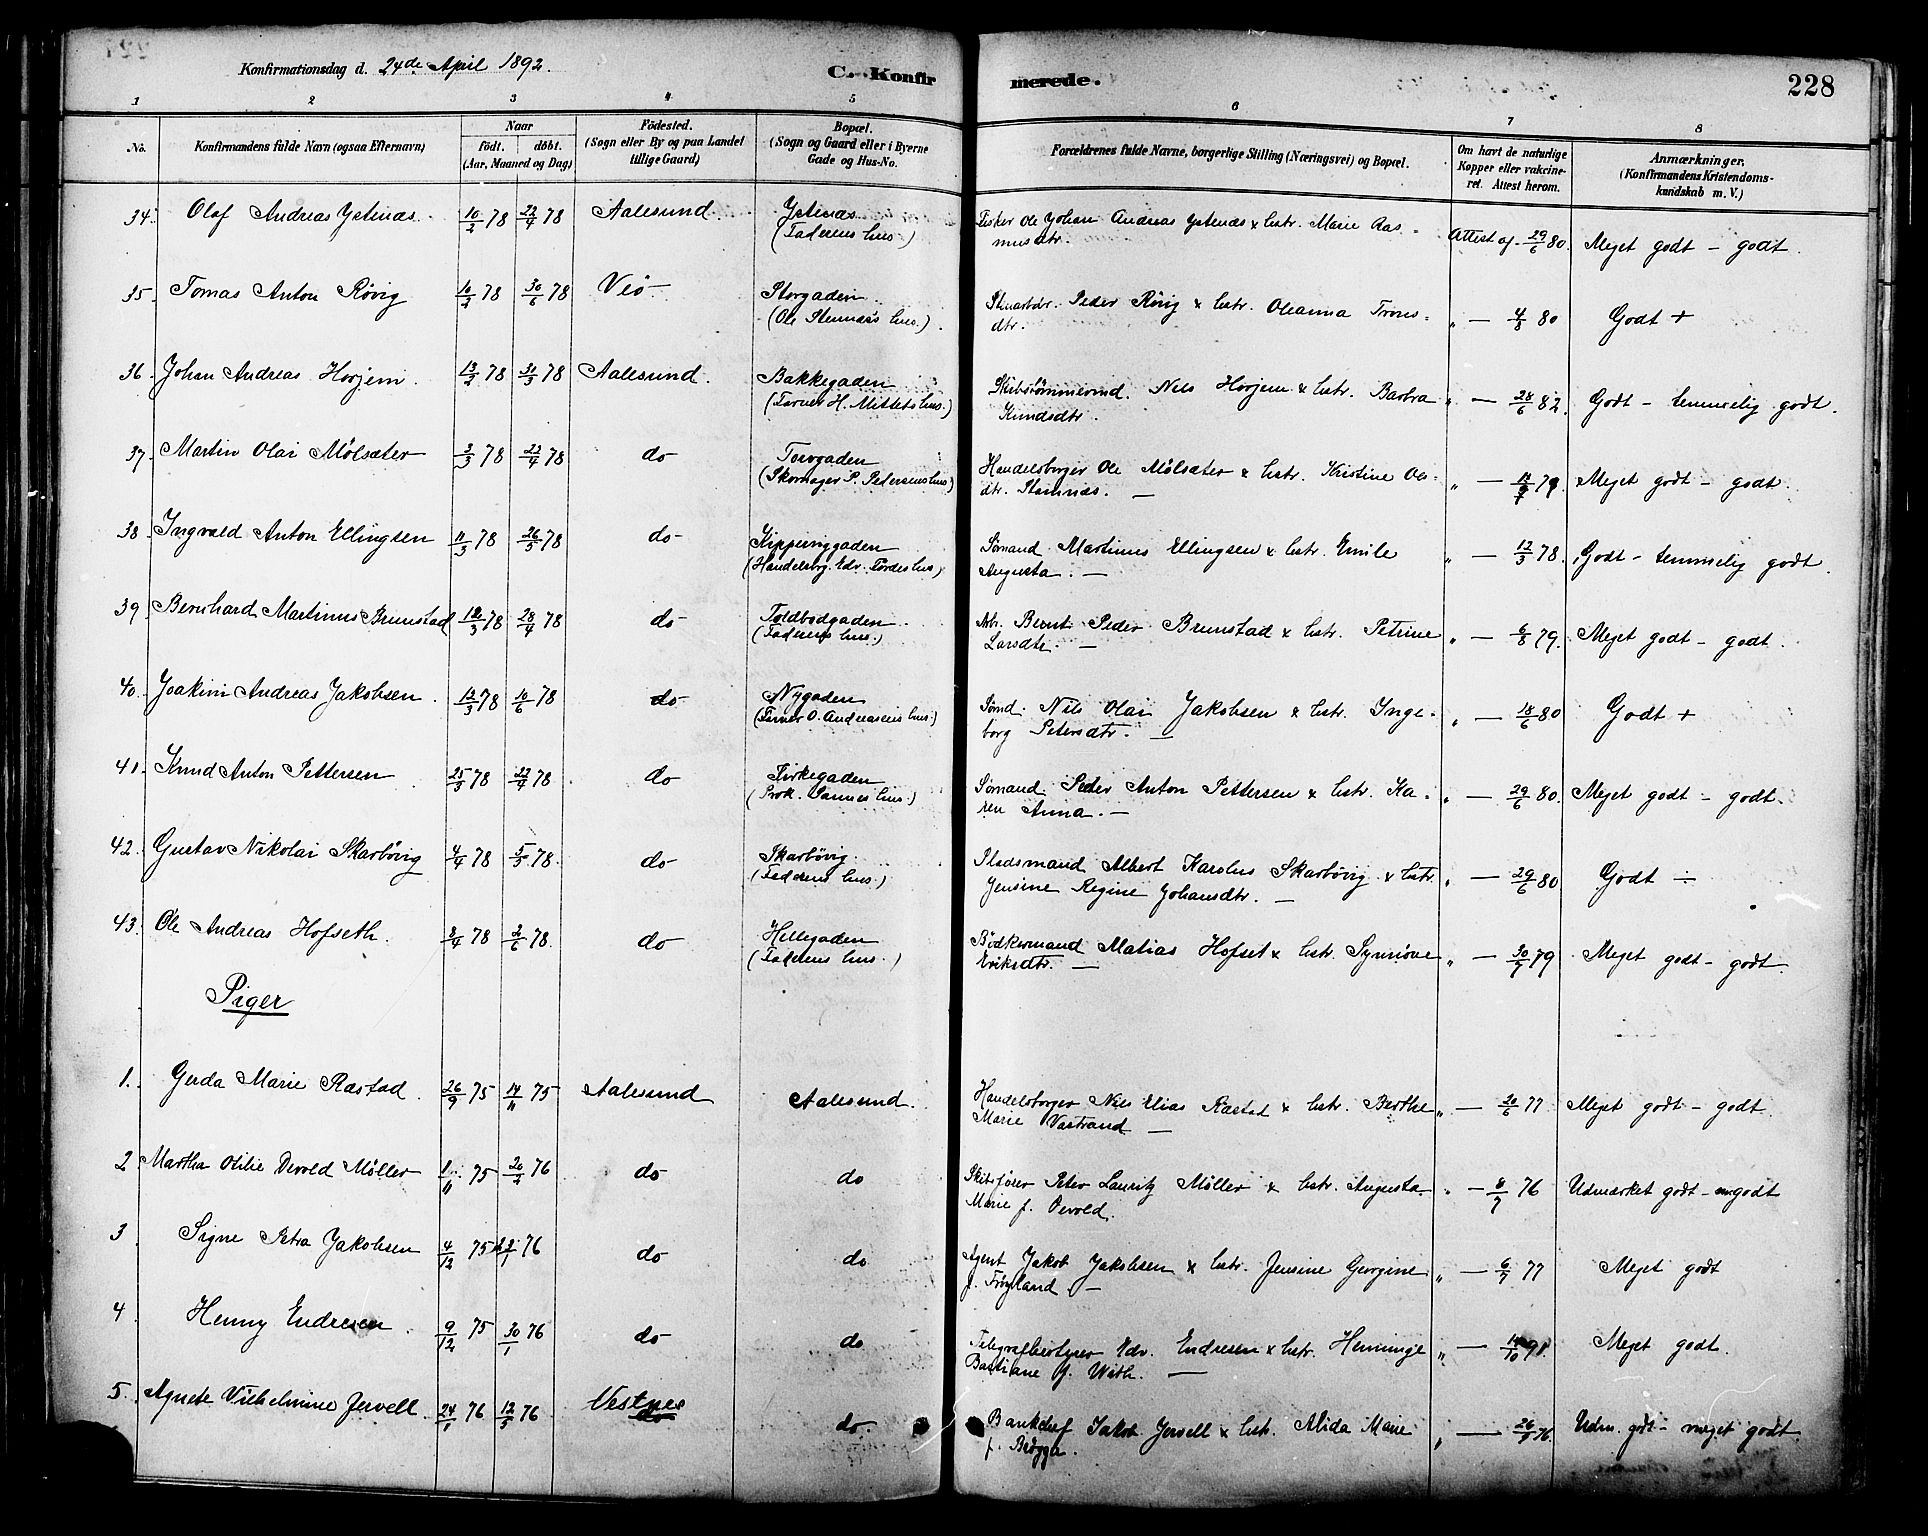 Konfirmationsdag d. 24de April 1892.
C. Konfirmerede.
228
1 2 3 4 5 6 7 8
No. Konfirmandens fulde Navn (ogsaa Efternavn) Naar født. døbt. (Aar, Maaned og Dag) Fødested. (Sogn eller By og paa Landet tillige Gaard) Bopæl. (Sogn og Gaard eller i Byerne Gade og Hus-No. Forældrenes fulde Navne, borgerlige Stilling (Næringsvei) og Bopæl. Om havt de naturlige Kopper eller vakcineret. Attest herom. Anmærkninger. (Konfirmandens Kristendomskundskab m. V.)
34. Olaf Andreas Ystenæs. 10/2 78 22/4 78 Aalesund. Ystenæs (Faderens hus.) Fisker Ole Johan Andreas Ystenæs & hstr. Marie Rasmusdtr. Attest af 29/6 80. Meget godt - godt.
35. Tomas Anton Røvig 10/2 78 30/6 78 Veø Storgaden (Ole Stennæs's hus.) Peder Røvig & hstr. Oleanna Tronsdtr. " - 4/8 80 Godt +
36. Johan Andreas Horjem. 13/2 78 31/3 78 Aalesund. Bakkegaden (Farver H. Mittets hus.) Skibstømmermd. Nils Horjem & hstr. Barbra Knudsdtr. " - 28/6 82. Godt - temmelig godt.
37. Martin Olai Mølsæter 3/3 78 22/4 78 do Torvgaden (Skomager P. Pedersens hus) Handelsborger Ole Mølsæter & hstr. Kristine Olsdtr. Stennæs. - " - 79. Meget godt - godt.
38. Ingvald Anton Ellingsen 11/3 78 26/5 78 do Kipperviggaden (Handelsbrg. Edv. Førdes hus) Sømand Martinus Ellingsen & hstr. Emile Augusta. - " - 12/3 78. Godt - temmelig godt.
39. Bernhard Martinus Brunstad 12/3 78 28/4 78 do Toldbodgaden (Faderens hus.) Arb. Bernt Peder Brunstad & hstr. Petrine Larsdtr. - " - 6/8 79. Meget godt - godt.
40. Joakim Andreas Jakobsen. 12/3 78 10/6 78 do Nygaden (O. Andreasens hus.) Sømd. Nils Olai Jakobsen & hstr. Ingeborg Petersdtr. - " - 18/6 80 Godt +
41. Knud Anton Pettersen 25/3 78 22/4 78. do Kirkegaden (Prok. Sannes hus.) Sømand Peder Anton Pettersen & hstr. Karen Anna. - " - 29/6 80. Meget godt - godt.
42. Gustav Nikolai Skarbøvig 4/4 78 5/5 78. do Skarbøvig. (Faderens hus.) Pladsmand Albert Karolus Skarbøvig & hstr. Jensine Regine Johansdtr. - " - 29/6 80 Godt ÷
43. Ole Andreas Hofseth. 8/4 78 2/6 78. do Hellegaden (Faderens hus.) Bødkermand Matias Hofset & hstr. Synnøve Eriksdtr. - " - 30/7 79 Meget godt - godt.
Piger
1. Gerda Marie Rastad. 26/9 75 14/11 75 Aalesund Aalesund. Handelsborger Nils Elias Rastad & hstr. Berthe Marie Vastrand - " - 20/6 77 Meget godt - godt.
2 Martha Otilie Devold Møller 1/11 75 20/2 76 do do Skibsfører Peter Lauritz Møller & hstr. Augusta Marie f. Devold. " - 8/7 76 Udmærket godt - mgodt
3 Signe Petra Jakobsen 4/12 75 76 do do Agent Jakob Jakobsen & hstr. Jensine Georgine f. Frøyland. - " - 6/7 77 Meget godt
4 Henny Endresen. 9/12 75 30/1 76 do do Telegrafbestyrer Edv. Endresen & hstr. Henninge Bastiane f. With. - " - 91. Meget godt.
5. Agnete Vilhelmine Jervell. 24/1 76 12/3 76 Vestnes do do. Bankchef Jakob Jervell & hstr. Alida Marie f. Brügga. " - 26/9 76. Udm. godt - meget godt.